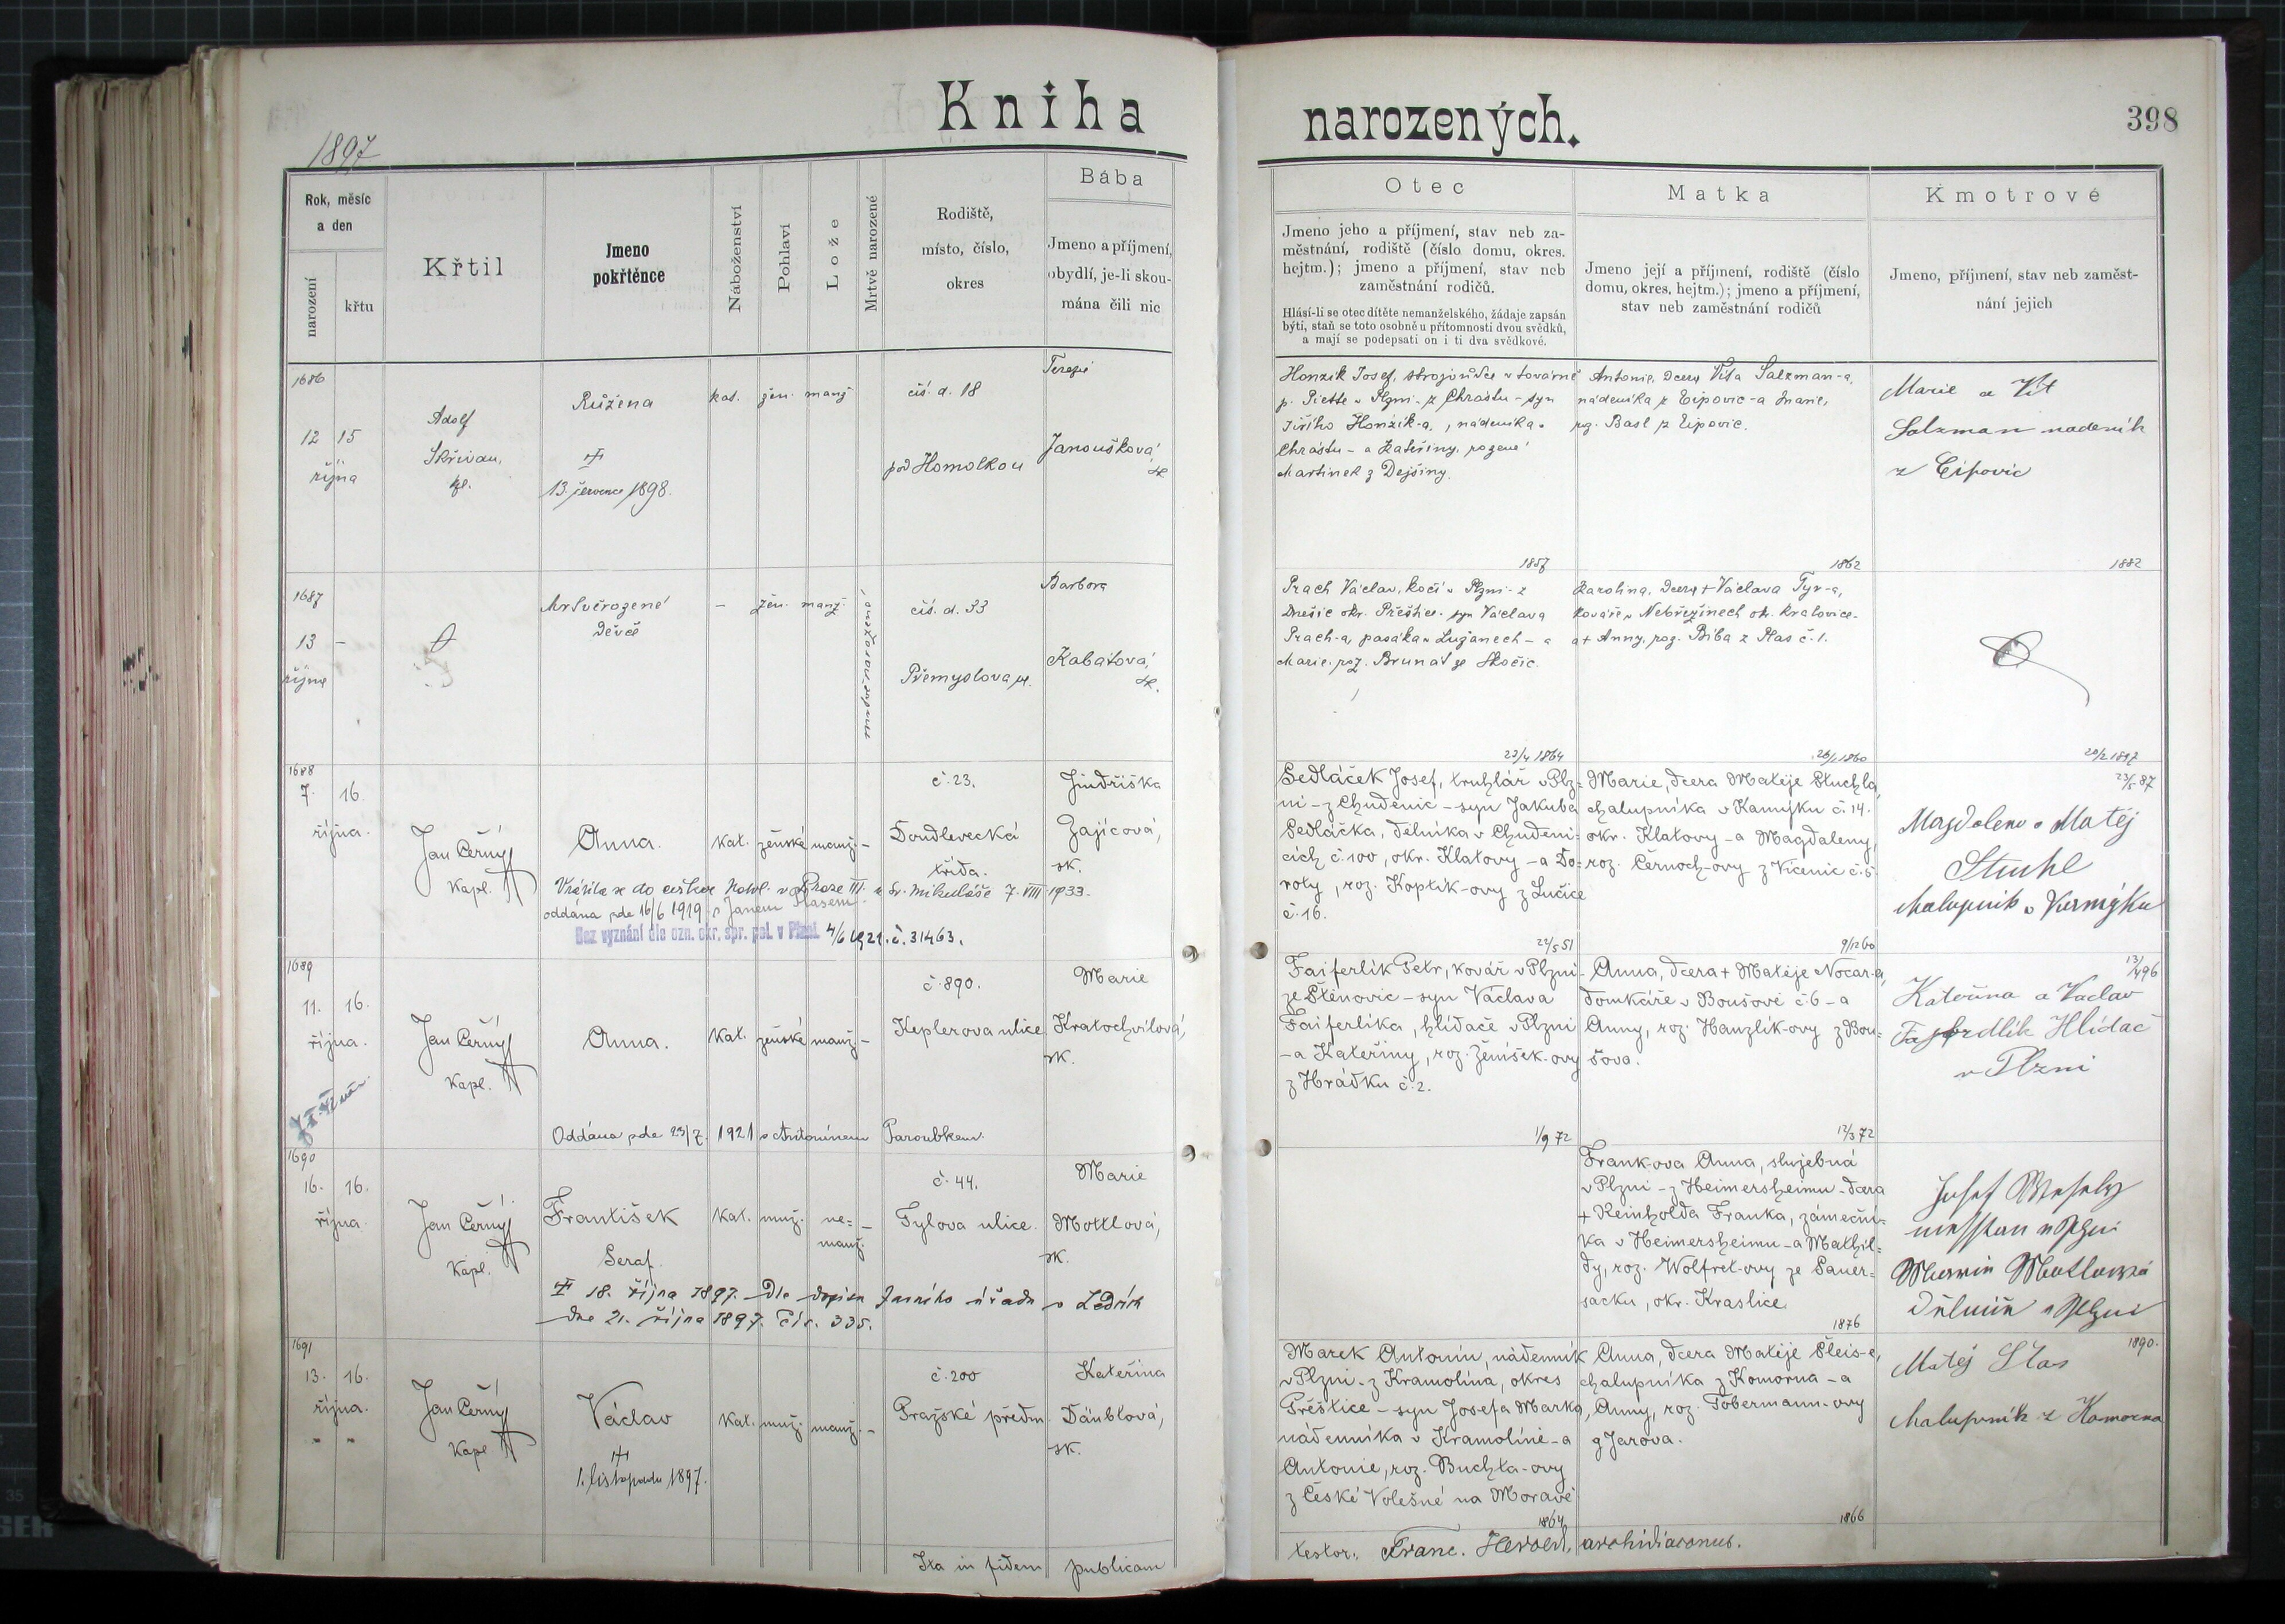 Kniha
narozených.
398
1897
Rok, měsíc
a den
narození
křtu
Křtil
Jmeno
pokřtěnce
Náboženství
Pohlaví
Lože
Mrtvě narozené
Rodiště,
místo, číslo,
okres
Bába
Jmeno a příjmení,
obydlí, je-li skou-
mána čili nic
Otec
Jmeno jeho a příjmení, stav neb za-
městnání, rodiště (číslo domu, okres.
hejtm.); jmeno a příjmení, stav neb
zaměstnání rodičů.
Hlásí-li se otec dítěte nemanželského, žádaje zapsán
býti, staň se toto osobně u přítomnosti dvou svědků,
a mají se podepsati on i ti dva svědkové.
Matka
Jmeno její a příjmení, rodiště (číslo
domu, okres, hejtm.); jmeno a příjmení,
stav neb zaměstnání rodičů
Kmotrové
Jmeno, příjmení, stav neb zaměst-
nání jejich
1686
12 15
října
Adolf
Skřivan,
kpl.
Růžena
13. července 1898.
kat. žen. manž
čís. d. 18
pod Homolkou
Terezie
Janoušková,
sk.
Honzík Josef, strojvůdce v továrně
p. Piette v Plzni - z Chrástu - syn
Jiřího Honzík-a, nádeníka v
Chrástu - a Kateřiny, rozené
Martinek z Dejšiny.
1857
Antonie, dcera Víta Salzman-a,
nádeníka z Ejpovic - a Marie,
roz. Basl z Ejpovic.
1862
Marie a Vít
Salzman nadeník
z Eipovic
1882
1687
13 -
října
Mrtvěrozené
děvče
- žen. manž.
čís. d. 33
Přemyslova ul.
Barbora
Kabátová,
sk.
Prach Václav, kočí v Plzni - z
Dnešic okr. Přeštice - syn Václava
Prach-a, pasáka v Lužanech - a
Marie, roz. Brunat ze Skočic.
22/4 1864
Karolina, dcera + Václava Tyr-a,
kováře v Nebřezinech okr. Kralovice -
a + Anny, roz. Bíba z Plas č. 1.
26/1 1860
20/2 1897
1688
7. 16.
října.
Jan Černý
Kapl.
Anna.
Kat. ženské manž. -
č. 23.
Doudlevecká
třída.
Jindřiška
Zajícová,
sk.
Vrátila se do církve katol. v Praze III. u Sv. Mikuláše 7. VIII. 1933.
oddána zde 16/6 1919 s Janem Hasem.
Bez vyznání dle ozn. okr. spr. pol. v Plzni 4/6 1921. č. 31463.
Sedláček Josef, truhlář v Plz-
ni - z Chudenic - syn Jakuba
Sedláčka, dělníka v Chudeni-
cích č. 100, okr. Klatovy - a Do-
roty, roz. Koptik-ovy z Lučice
č. 16.
22/5 51
Marie, dcera Matěje Stuchla,
chalupníka v Kamýku č. 14.
okr. Klatovy - a Magdaleny,
roz. Černoch-ovy z Vícenic č. 5
9/12 60
23/5 87
Magdalena a Matěj
Stuchl
chalupnik v Kamýku
1689
11. 16.
října.
Jan Černý
Kapl.
Anna.
Kat. ženské manž. -
č. 890.
Keplerova ulice
Marie
Kratochvilová,
sk.
Oddána zde 23/7. 1921 s Antonínem Paroubkem.
Faiferlík Petr, kovář v Plzni -
ze Štěnovic - syn Václava
Faiferlíka, hlídače v Plzni
- a Kateřiny, roz. Ženíšek-ovy
z Hrádku č. 2.
1/9 72
Anna, dcera + Matěje Nocar-a,
domkáře v Boušově č. 6 - a
Anny, roz. Hanzlík-ovy z Bou-
šova.
12/3 72
13/4 96
Kateřina a Vaclav
Hlídač
v Plzni
1690
16. 16.
října.
Jan Černý
Kapl.
František
Seraf.
Kat. muž. ne- -
manž.
č. 44.
Tylova ulice.
Marie
Mottlová,
sk.
18. října 1897. Dle dopisu farního úřadu v Ledcích
dne 21. října 1897. Čís. 335.
Frank-ova Anna, služebná
v Plzni - z Heimersheimu - dcera
+ Reinholda Franka, zámeční-
ka v Heimersheimu - a Mathil-
dy, roz. Wolfret-ovy ze Sauer-
sacku, okr. Kraslice
1876
1691
13. 16.
října.
" "
Jan Černý
Kapl
Václav
1. listopadu 1897.
Kat. muž. manž. -
č. 200
Pražské předm.
Kateřina
Däublová,
sk.
Marek Antonín, nádenník
v Plzni - z Kramolína, okres
Přeštice - syn Josefa Marka,
nádenníka v Kramolíně - a
Antonie, roz. Buchta-ovy
z České Volešné na Moravě
1864
Anna, dcera Matěje Šleis-e,
chalupníka z Komorna - a
Anny, roz. Tobermann-ovy
z Jarova.
1866
1890.
Matěj
chalupník z Komorna
Ita in fidem publicam
testor: Franc. Herold, archidiaconus.